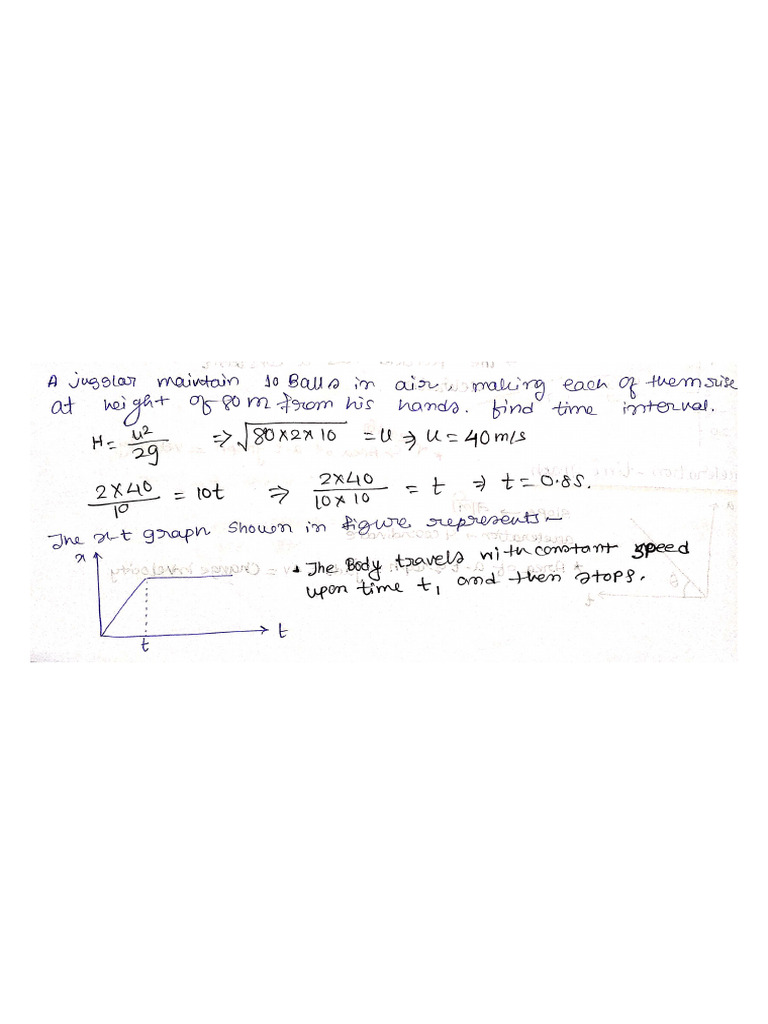 A jugglar maintain 10 Balls in air, making each of them rise
at height of 80 m from his hands. find time interval.
H = u²/2g ⇒ √80×2×10 = u ⇒ u = 40 m/s
2×40/10 = 10t ⇒ 2×40/10×10 = t ⇒ t = 0.8 s.
The x-t graph shown in figure represents –
x
• The Body travels with constant speed
upon time t₁ and then stops.
t
t